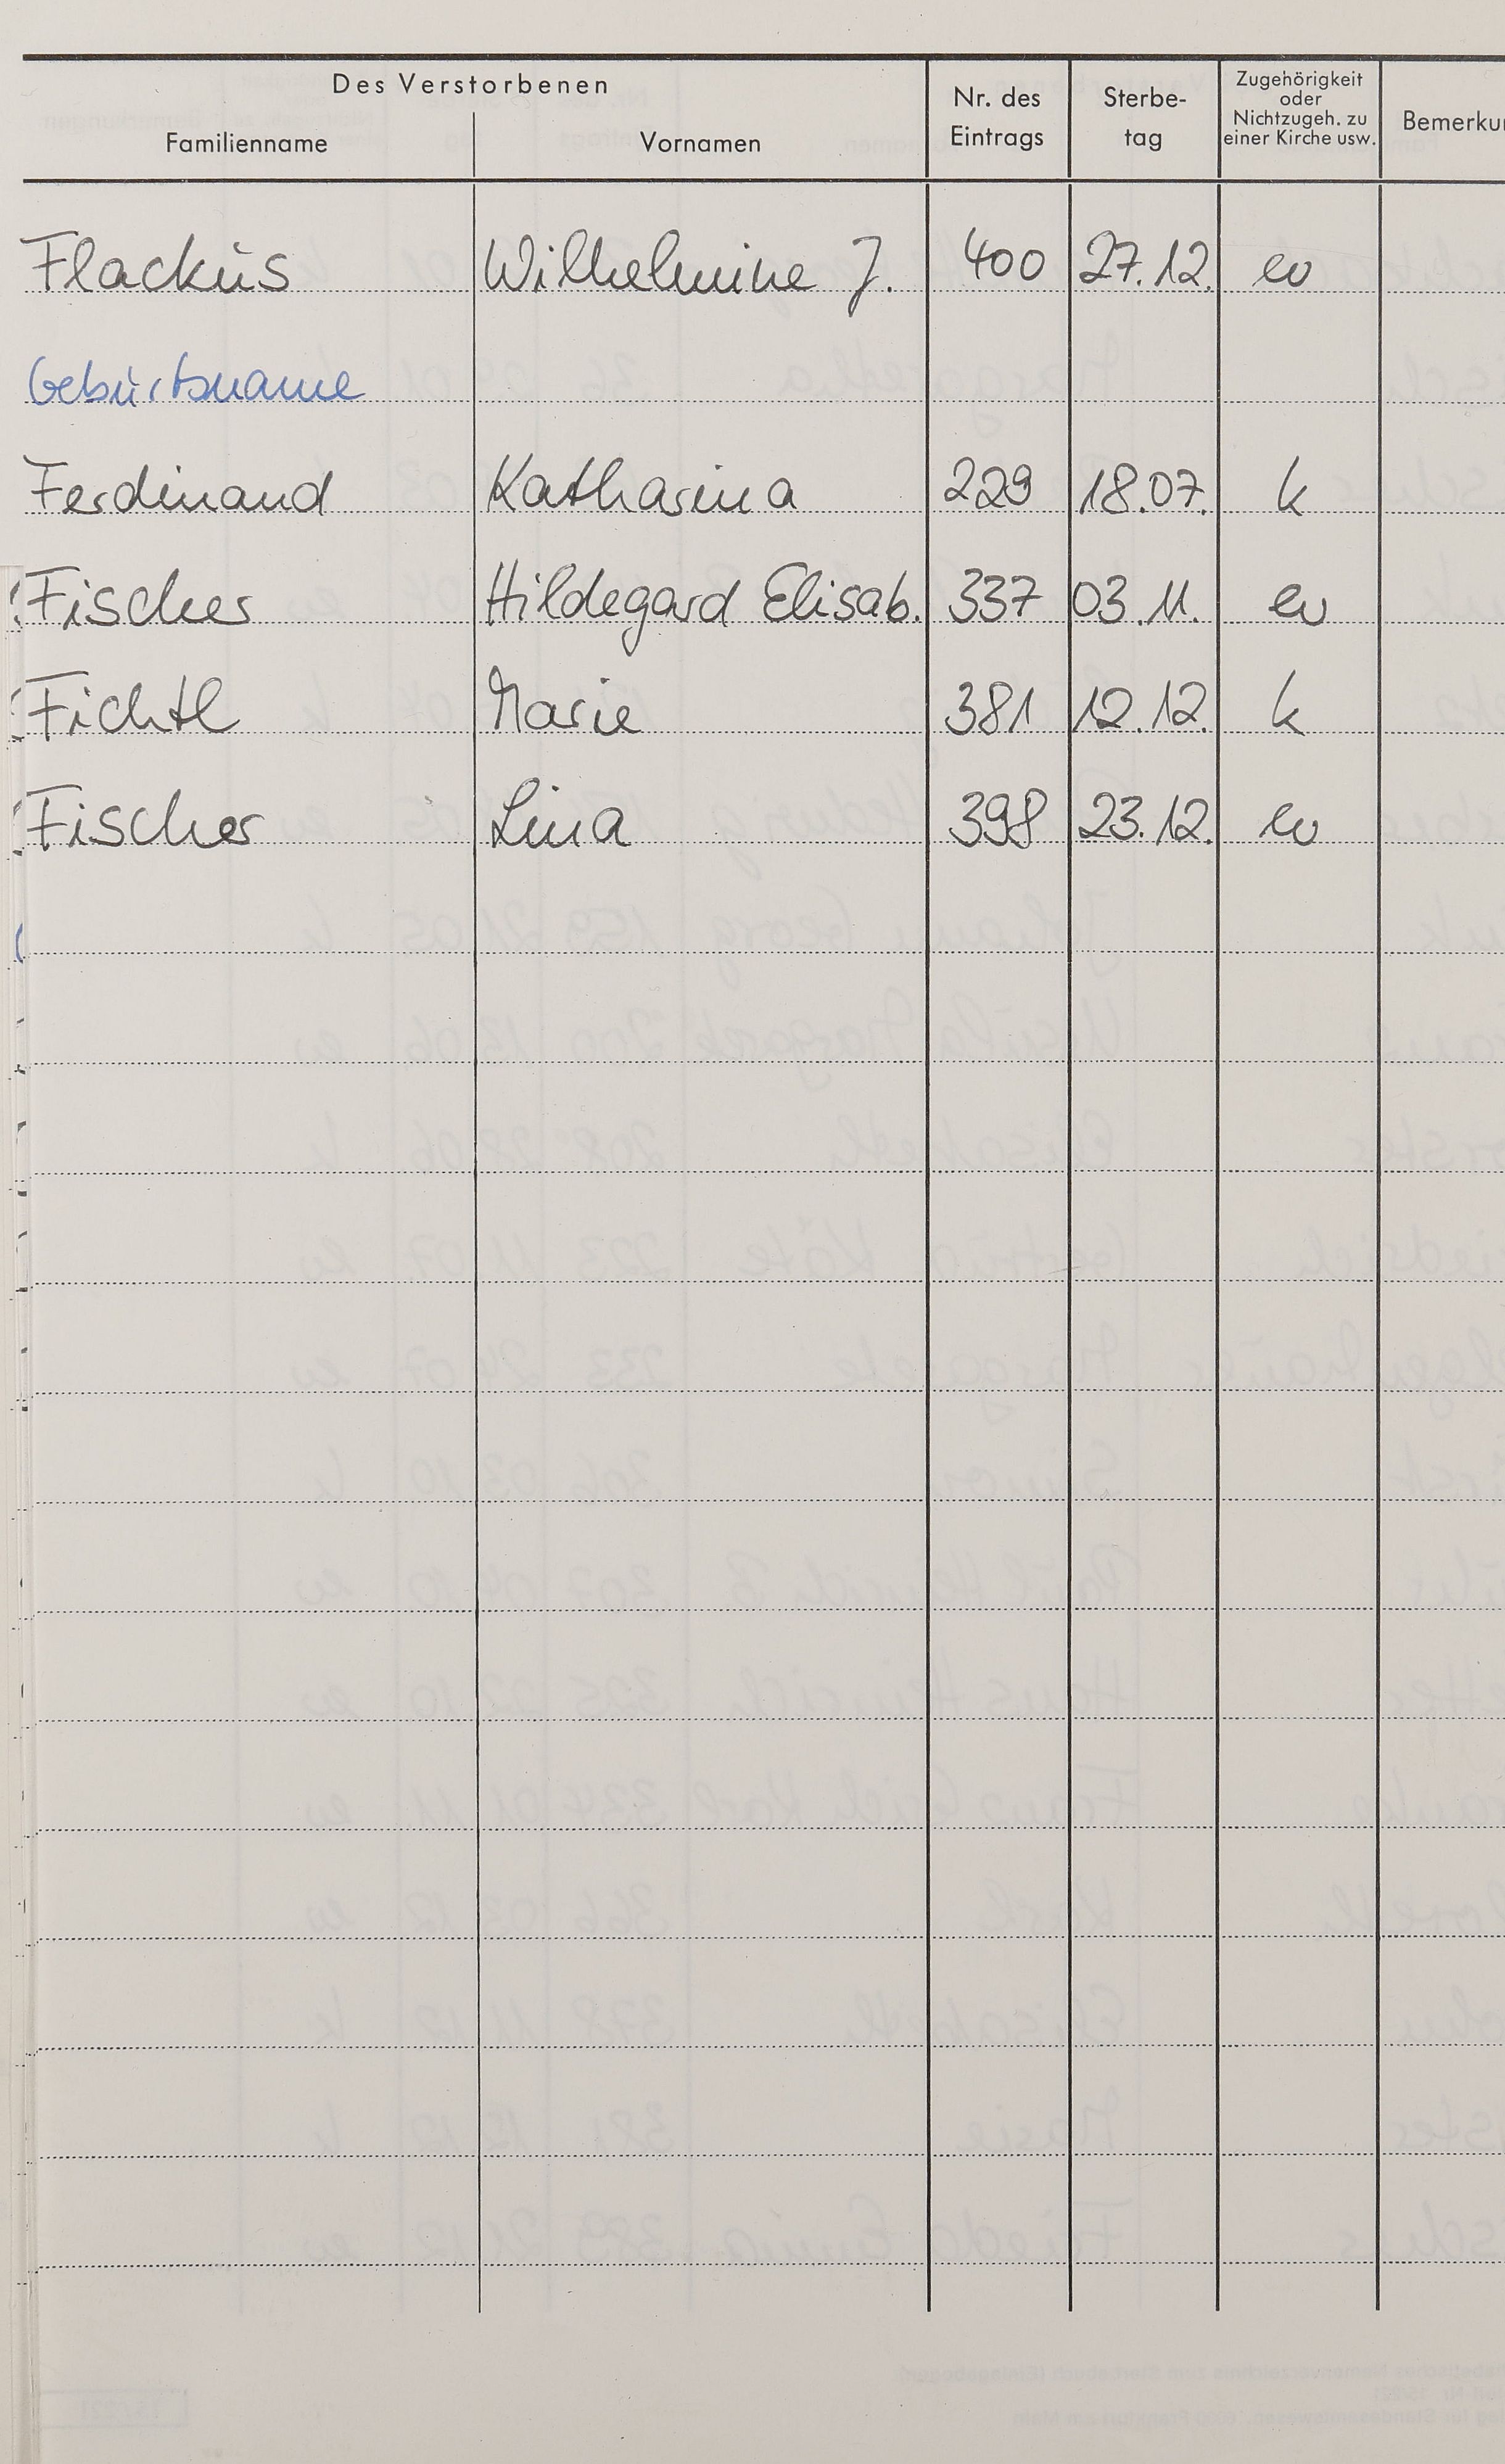 Des Verstorbenen
Familienname Vornamen Nr. des Eintrags Sterbe-tag Zugehörigkeit oder Nichtzugeh. zu einer Kirche usw. Bemerku
Flackus Wilhelmine J. 400 27.12. ev
Geburtsname
Ferdinand Katharina 229 18.07. k
Fischer Hildegard Elisab. 337 03.11. ev
Fichtl Marie 381 12.12. k
Fischer Lina 398 23.12. ev